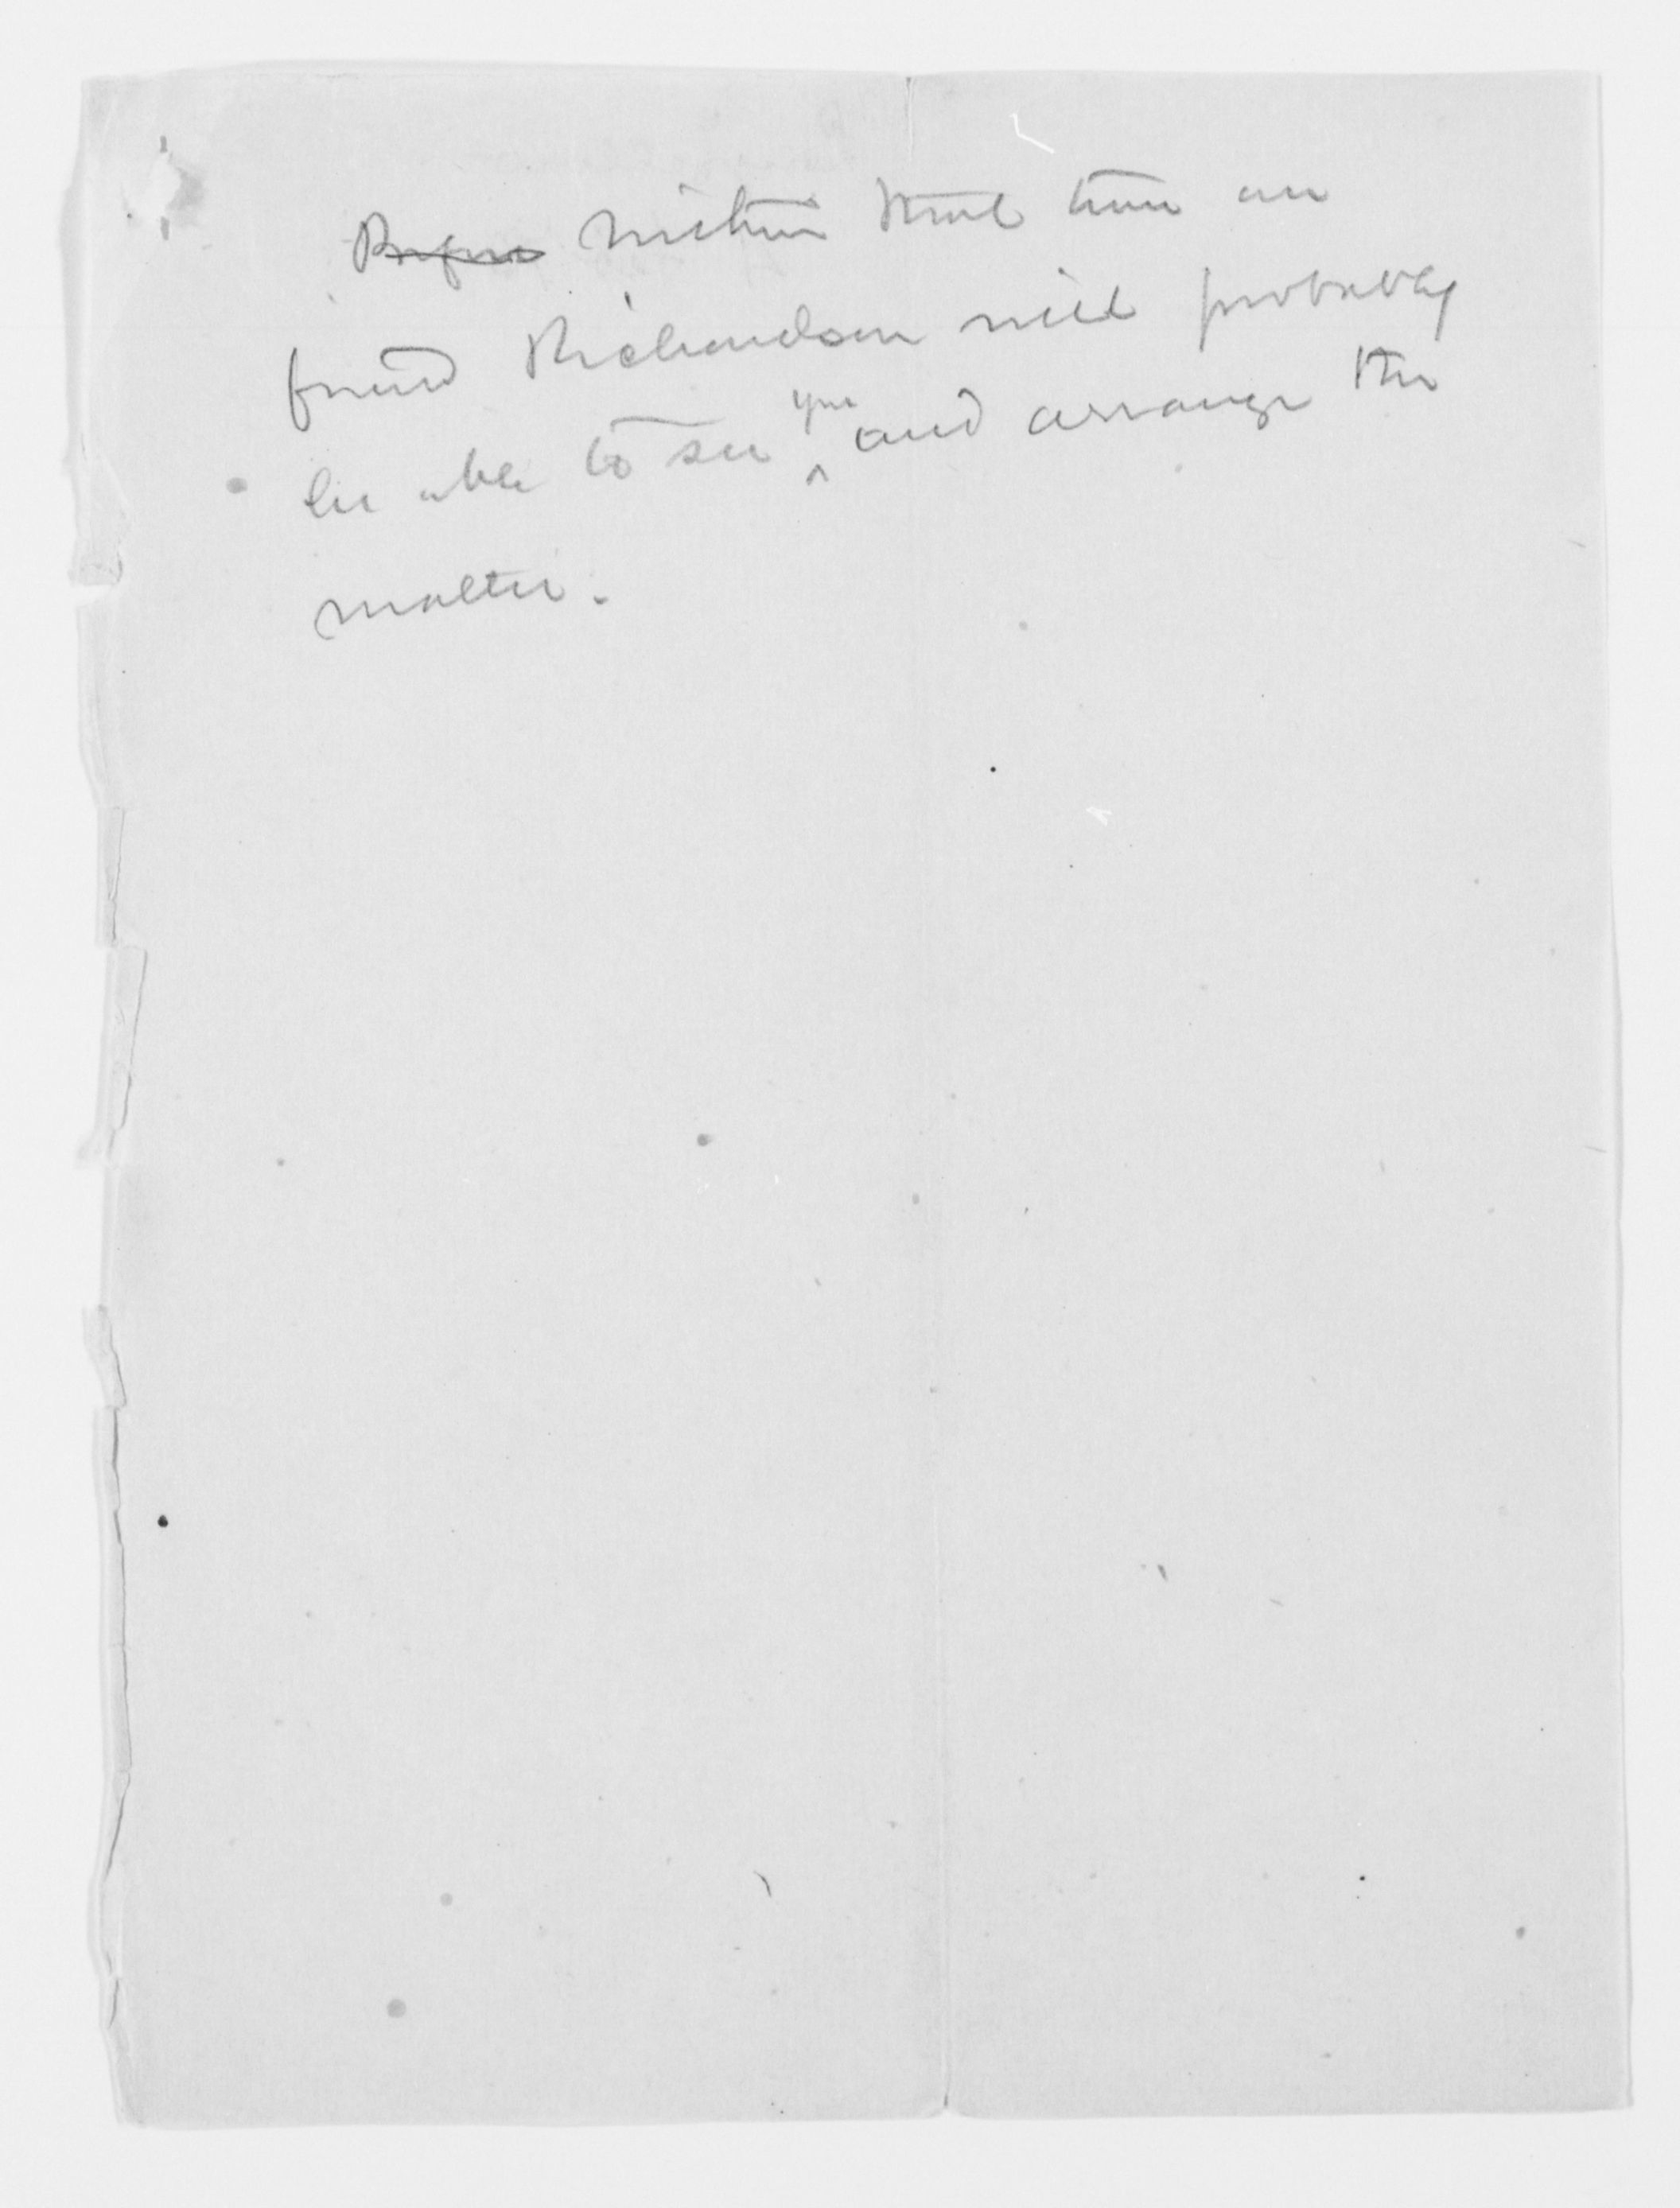 ~~Before~~ Within that time our
friend Richardson will probably
be able to see you and arrange the
matter.